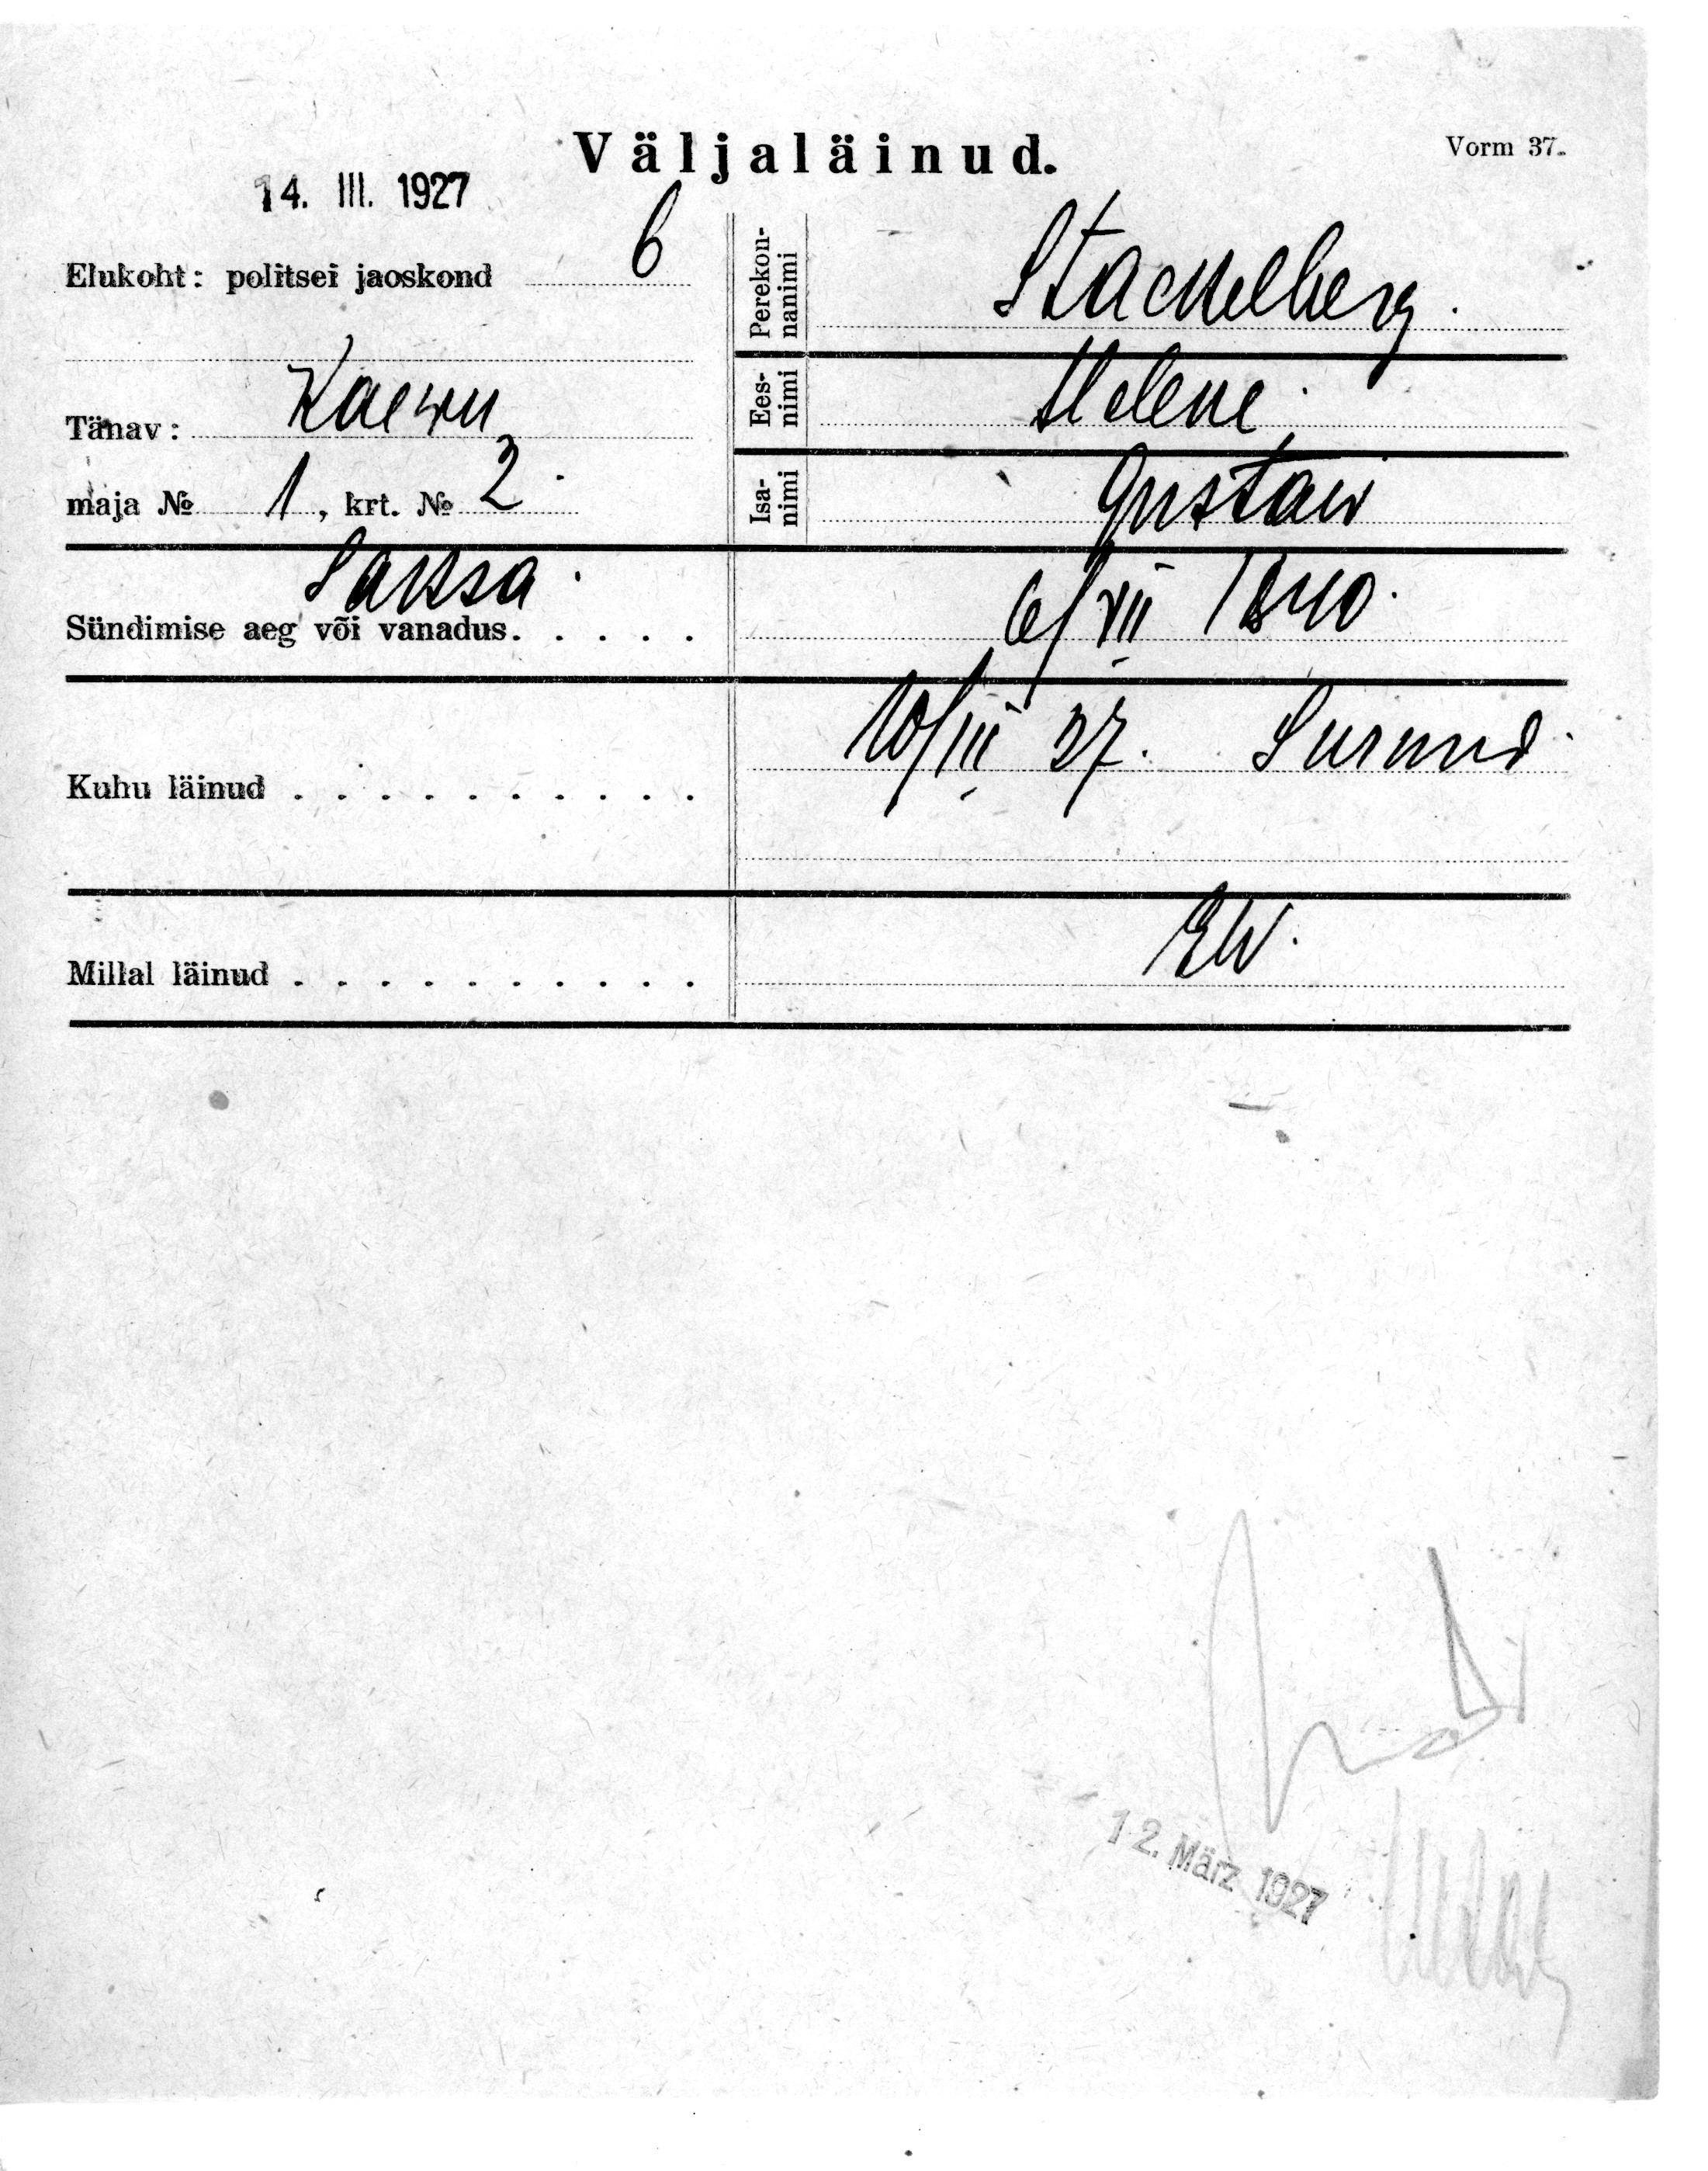 Väljaläinud.
Vorm 37.
14. III. 1927
Elukoht: politsei jaoskond 6
Tänav: Kaewu
maja № 1, krt. № 2.
Saksa.
Perekon-
nanimi
Stackelberg.
Ees-
nimi
Helene.
Isa-
nimi
Gustaw
Sündimise aeg või vanadus. . . . . 6/VII 1840.
Kuhu läinud . . . . . . . . . . 10/III 27. Surnud.
Millal läinud . . . . . . . . . . EW.
12. März 1927